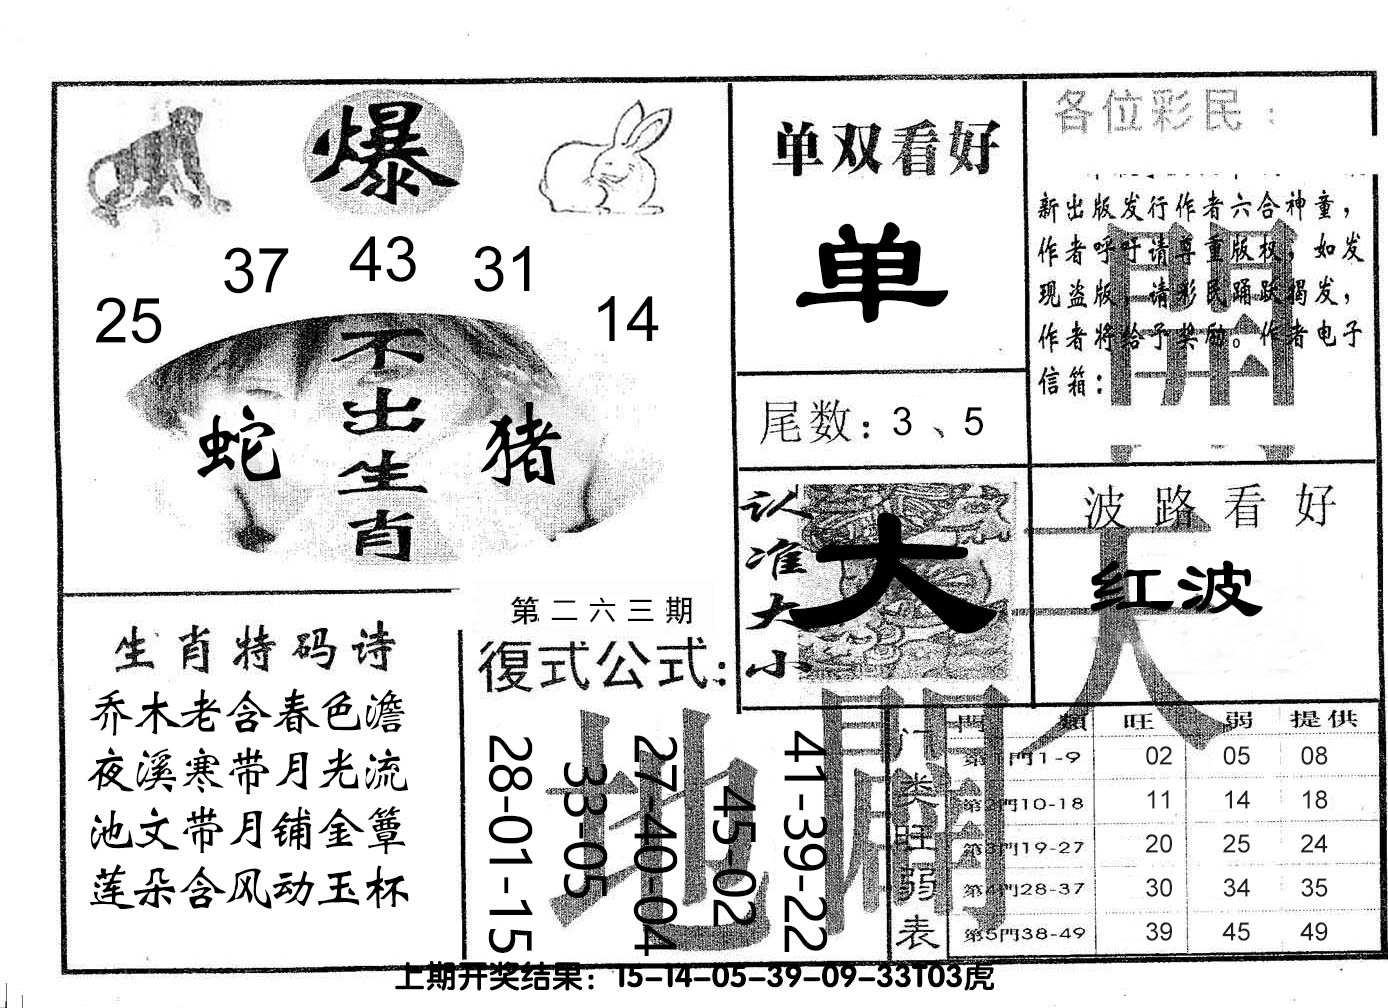 爆
25 37 43 31 14
不出生肖
蛇
猪
单双看好
单
尾数：3、5
各位彩民：
新出版发行作者六合神童，
作者呼吁请尊重版权，如发
现盗版，请彩民踊跃揭发，
作者将给予奖励。作者电子
信箱：
认准大小
大
波路看好
红波
天
地
開
生肖特码诗
乔木老含春色澹
夜溪寒带月光流
池文带月铺金簟
莲朵含风动玉杯
第二六三期
復式公式：
28-01-15
33-05
27-40-04
45-02
41-39-22
门类旺弱表
門 類 旺 弱 提供
第1門1-9 02 05 08
第2門10-18 11 14 18
第3門19-27 20 25 24
第4門28-37 30 34 35
第5門38-49 39 45 49
上期开奖结果：15-14-05-39-09-33T03虎